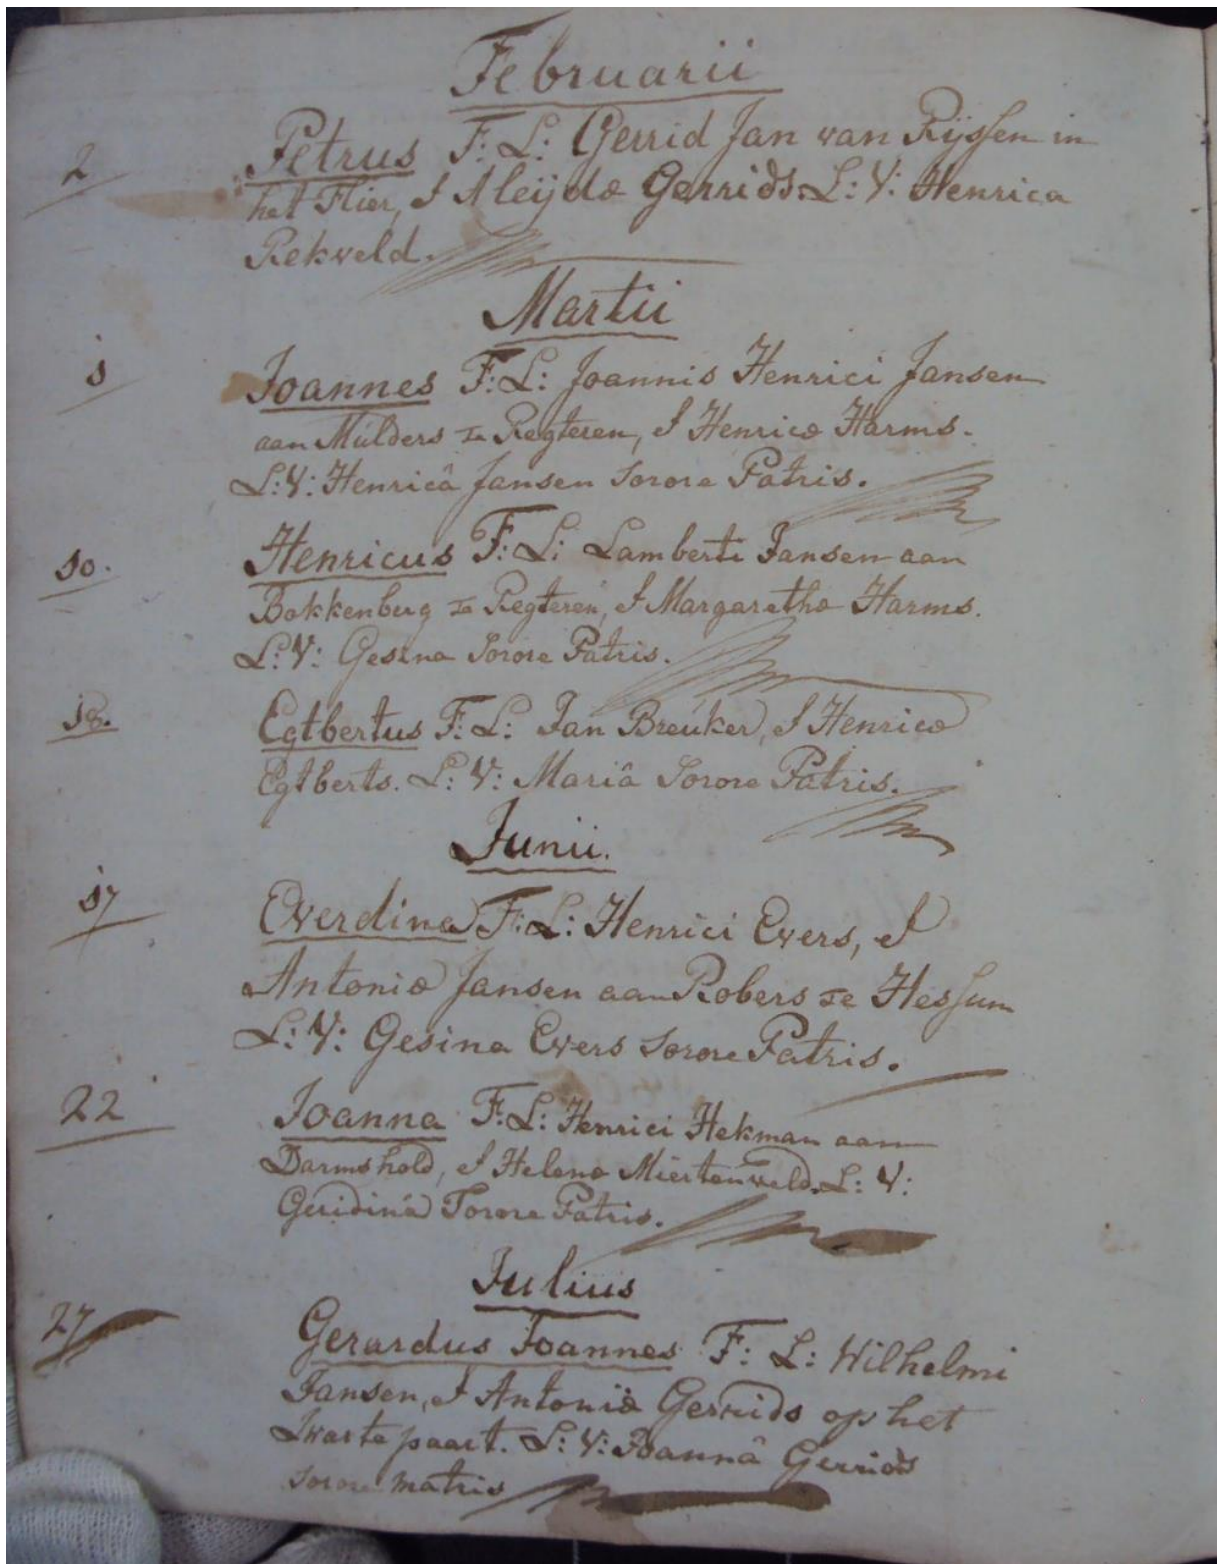 Februarii
2 Petrus F: L: Gerrid Jan van Rijssen in
het Flier, & Aleijdæ Gerrids. L: V: Henrica
Rekveld.
Martii
1 Joannes F: L: Joannis Henrici Jansen
aan Mulders te Regteren, & Henricæ Harms.
L: V: Henricâ Jansen Sorore Patris.
10. Henricus F: L: Lamberti Jansen aan
Bokkenberg te Regteren, & Margarethæ Harms.
L: V: Gesina Sorore Patris.
18. Egtbertus F: L: Jan Breuker, & Henricæ
Egtberts. L: V: Mariâ Sorore Patris.
Junii.
17 Everdina F: L: Henrici Evers, &
Antoniæ Jansen aan Robers te Hessum
L: V: Gesina Evers Sorore Patris.
22 Joanna F: L: Henrici Hekman aan
Darmshold, & Helenæ Miertenveld. L: V:
Geridina Sorore Patris.
Julius
27 Gerardus Joannes F: L: Wilhelmi
Jansen, & Antoniæ Gerrids op het
Swarte paart. L: V: Joannâ Gerrids
sorore matris